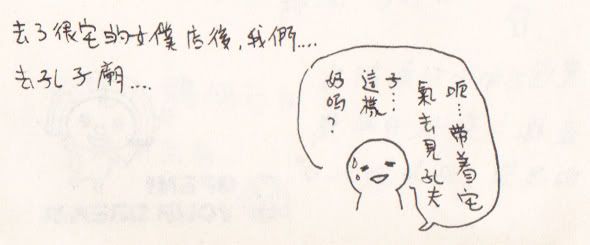 去了很宅的女僕店後,我們....
去孔子廟....
呃…帶着宅
氣去見孔夫
子…
這樣
好嗎?